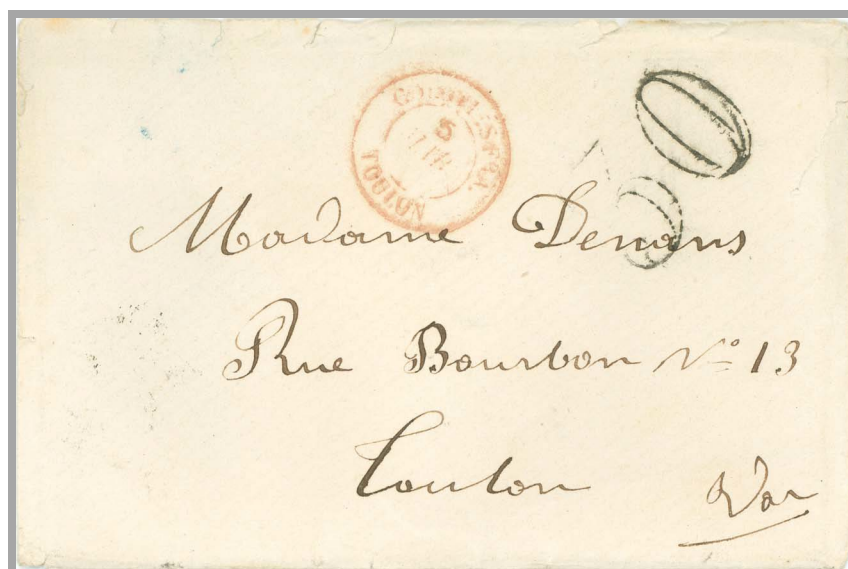 5
TOULON
Madame Denans
Rue Bourbon N° 13
Toulon Var